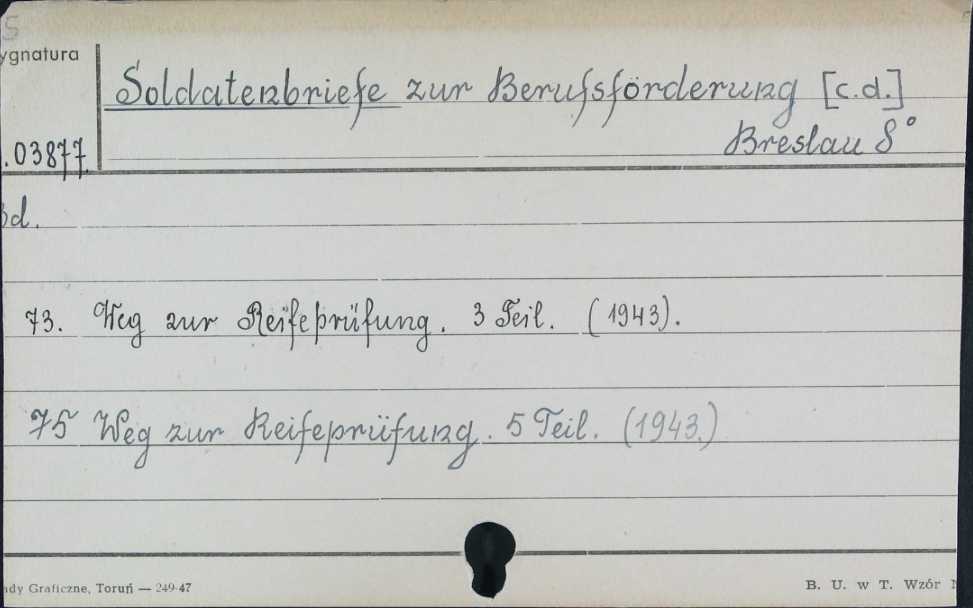 S
ygnatura
Soldatenbriefe zur Berufsförderung [c.d.]
Breslau 8°
.03877
Bd.
73. Weg zur Reifeprüfung. 3 Teil. (1943).
75 Weg zur Reifeprüfung. 5 Teil. (1943.)
ady Graficzne, Toruń — 249-47
B. U. w T. Wzór